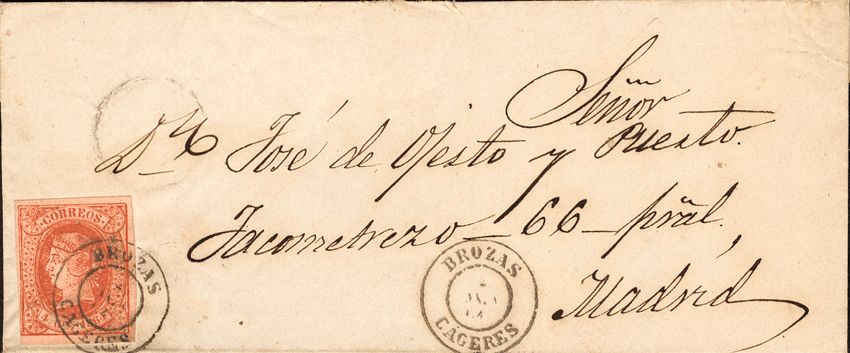 Señor
Dn José de Yesto y Puesto.
Jacometrezo 66 pral.,
Madrid
CORREOS.
BROZAS
CÁCERES
BROZAS
CÁCERES